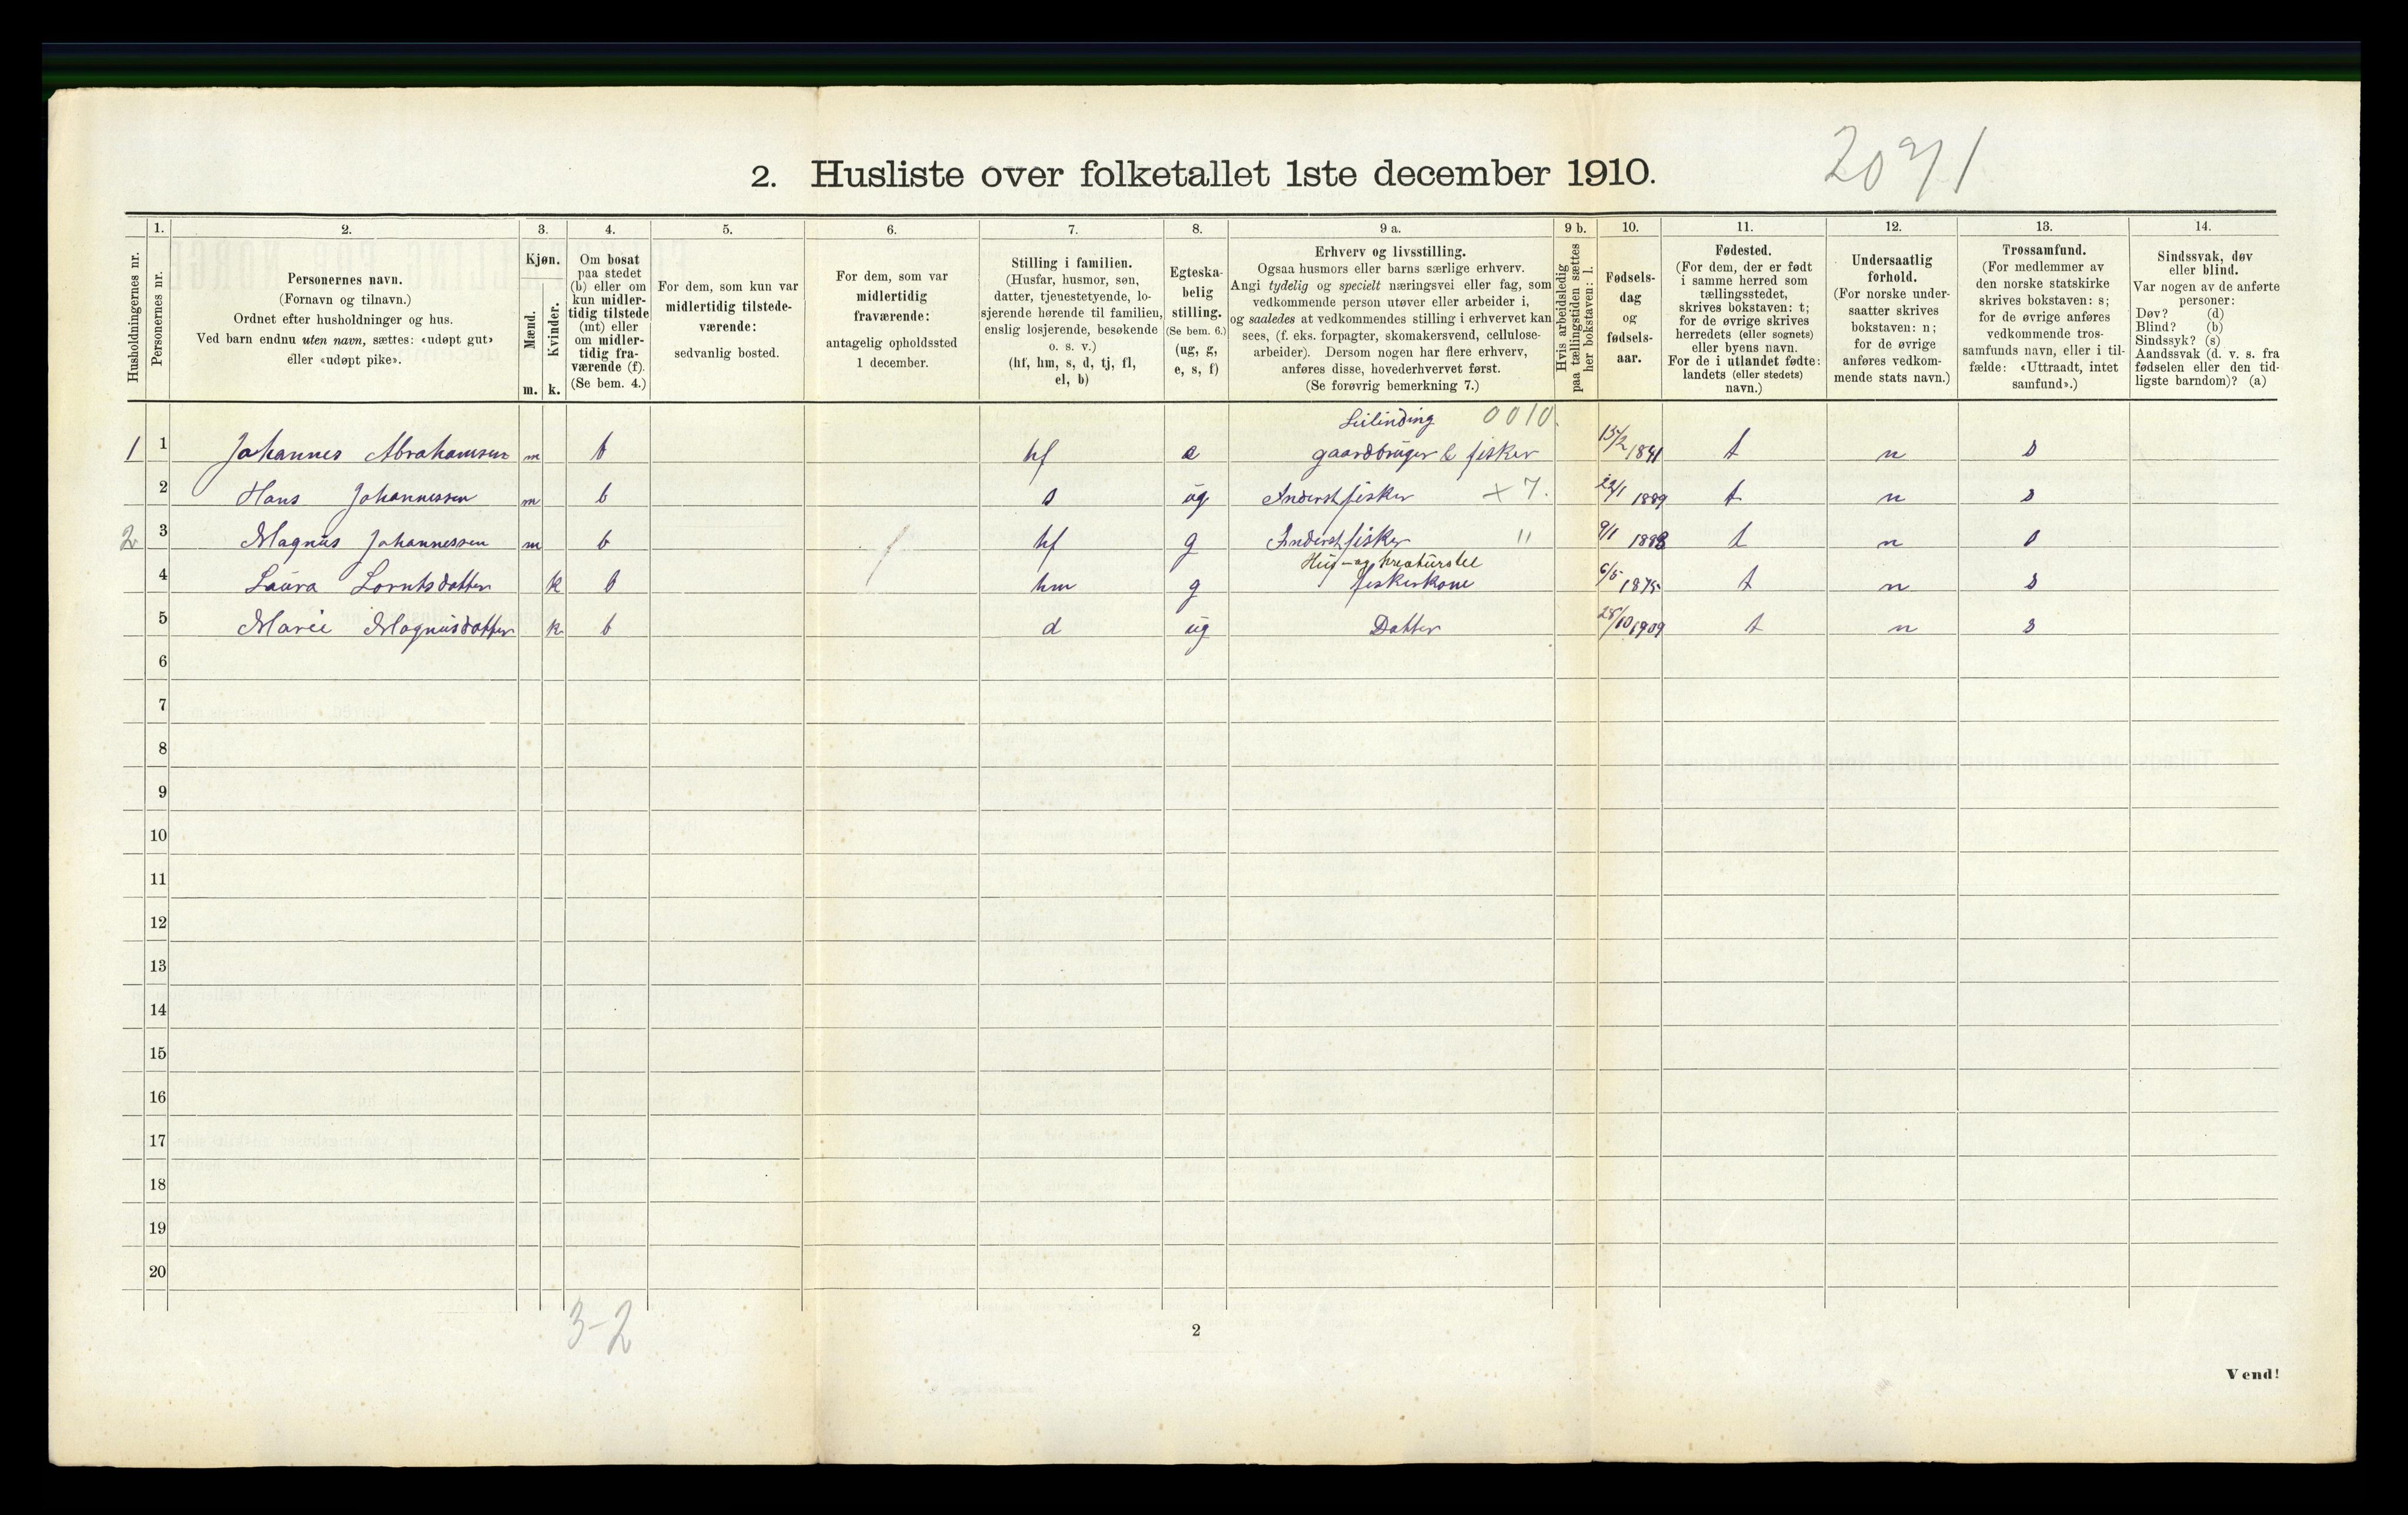 2. Husliste over folketallet 1ste december 1910.
2071
Husholdningernes nr.
1.
Personernes nr.
2.
Personernes navn.
(Fornavn og tilnavn.)
Ordnet efter husholdninger og hus.
Ved barn endnu uten navn, sættes: «udøpt gut»
eller «udøpt pike».
3.
Kjøn.
Mænd.
Kvinder.
m. k.
4.
Om bosat
paa stedet
(b) eller om
kun midler-
tidig tilstede
(mt) eller
om midler-
tidig fra-
værende (f).
(Se bem. 4.)
5.
For dem, som kun var
midlertidig tilstede-
værende:
sedvanlig bosted.
6.
For dem, som var
midlertidig
fraværende:
antagelig opholdssted
1 december.
7.
Stilling i familien.
(Husfar, husmor, søn,
datter, tjenestetyende, lo-
sjerende hørende til familien,
enslig losjerende, besøkende
o. s. v.)
(hf, hm, s, d, tj, fl,
el, b)
8.
Egteska-
belig
stilling.
(Se bem. 6.)
(ug, g,
e, s, f)
9 a.
Erhverv og livsstilling.
Ogsaa husmors eller barns særlige erhverv.
Angi tydelig og specielt næringsvei eller fag, som
vedkommende person utøver eller arbeider i,
og saaledes at vedkommendes stilling i erhvervet kan
sees, (f. eks. forpagter, skomakersvend, cellulose-
arbeider). Dersom nogen har flere erhverv,
anføres disse, hovederhvervet først.
(Se forøvrig bemerkning 7.)
9 b.
Hvis arbeidsledig
paa tællingstiden sættes
her bokstaven: l.
10.
Fødsels-
dag
og
fødsels-
aar.
11.
Fødested.
(For dem, der er født
i samme herred som
tællingsstedet,
skrives bokstaven: t;
for de øvrige skrives
herredets (eller sognets)
eller byens navn.
For de i utlandet fødte:
landets (eller stedets)
navn.)
12.
Undersaatlig
forhold.
(For norske under-
saatter skrives
bokstaven: n;
for de øvrige
anføres vedkom-
mende stats navn.)
13.
Trossamfund.
(For medlemmer av
den norske statskirke
skrives bokstaven: s;
for de øvrige anføres
vedkommende tros-
samfunds navn, eller i til-
fælde: «Uttraadt, intet
samfund».)
14.
Sindssvak, døv
eller blind.
Var nogen av de anførte
personer:
Døv? (d)
Blind? (b)
Sindssyk? (s)
Aandssvak (d. v. s. fra
fødselen eller den tid-
ligste barndom)? (a)
Leilinding 0010
1 1 Johannes Abrahamsen m b hf e gaardbruger & fisker 15/2 1841 t n s
2 Hans Johannessen m b s ug fisker x 7. 1889 t n s
2 3 Magnus Johannessen m b hf g fisker " 9/1 t n s
Hus- og kreaturstel
4 Laura Lorntsdatter k b hm g fiskerkone 6/5 1875 t n s
5 Marie Magnusdatter k b d ug Datter 28/10 1909 t n s
6
7
8
9
10
11
12
13
14
15
16
17
18
19
20
3-2
2
Vend!